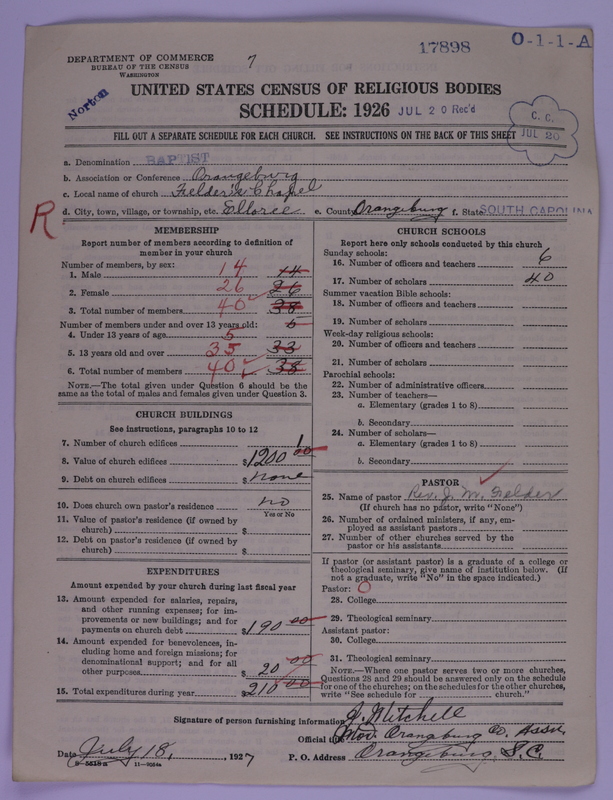 17898
O-1-1-A
DEPARTMENT OF COMMERCE
BUREAU OF THE CENSUS
WASHINGTON
7
Norton
UNITED STATES CENSUS OF RELIGIOUS BODIES
SCHEDULE: 1926
JUL 20 Rec'd
C. C.
JUL 20
FILL OUT A SEPARATE SCHEDULE FOR EACH CHURCH. SEE INSTRUCTIONS ON THE BACK OF THIS SHEET
a. Denomination BAPTIST
b. Association or Conference Orangeburg
c. Local name of church Fielder's Chapel
R
d. City, town, village, or township, etc. Elloree e. County Orangeburg f. State SOUTH CAROLINA
MEMBERSHIP
Report number of members according to definition of member in your church
Number of members, by sex:
1. Male 14 14
2. Female 26 26
3. Total number of members 40 38
Number of members under and over 13 years old: 5
4. Under 13 years of age 5
5. 13 years old and over 35 33
6. Total number of members 40 38
NOTE.—The total given under Question 6 should be the
same as the total of males and females given under Question 3.
CHURCH BUILDINGS
See instructions, paragraphs 10 to 12
7. Number of church edifices 1
8. Value of church edifices $1200 00
9. Debt on church edifices $ none
10. Does church own pastor's residence no
Yes or No
11. Value of pastor's residence (if owned by
church) $
12. Debt on pastor's residence (if owned by
church) $
EXPENDITURES
Amount expended by your church during last fiscal year
13. Amount expended for salaries, repairs,
and other running expenses; for im-
provements or new buildings; and for
payments on church debt $190 00
14. Amount expended for benevolences, in-
cluding home and foreign missions; for
denominational support; and for all
other purposes $20 00
15. Total expenditures during year $210 00
CHURCH SCHOOLS
Report here only schools conducted by this church
Sunday schools:
16. Number of officers and teachers 6
17. Number of scholars 40
Summer vacation Bible schools:
18. Number of officers and teachers
19. Number of scholars
Week-day religious schools:
20. Number of officers and teachers
21. Number of scholars
Parochial schools:
22. Number of administrative officers
23. Number of teachers—
a. Elementary (grades 1 to 8)
b. Secondary
24. Number of scholars—
a. Elementary (grades 1 to 8)
b. Secondary
PASTOR
25. Name of pastor Rev. J. M. Fielder
(If church has no pastor, write "None")
26. Number of ordained ministers, if any, em-
ployed as assistant pastors
27. Number of other churches served by the
pastor or his assistants
If pastor (or assistant pastor) is a graduate of a college or
theological seminary, give name of institution below. (If
not a graduate, write "No" in the space indicated.)
Pastor: O
28. College
29. Theological seminary
Assistant pastor:
30. College
31. Theological seminary
NOTE.—Where one pastor serves two or more churches,
Questions 28 and 29 should be answered only on the schedule
for one of the churches; on the schedules for the other churches,
write "See schedule for church."
Signature of person furnishing information J. Mitchell
Official title Mod. Orangeburg Co. Assn.
Date July 18, 1927 P. O. Address Orangeburg, S.C.
11-9084a